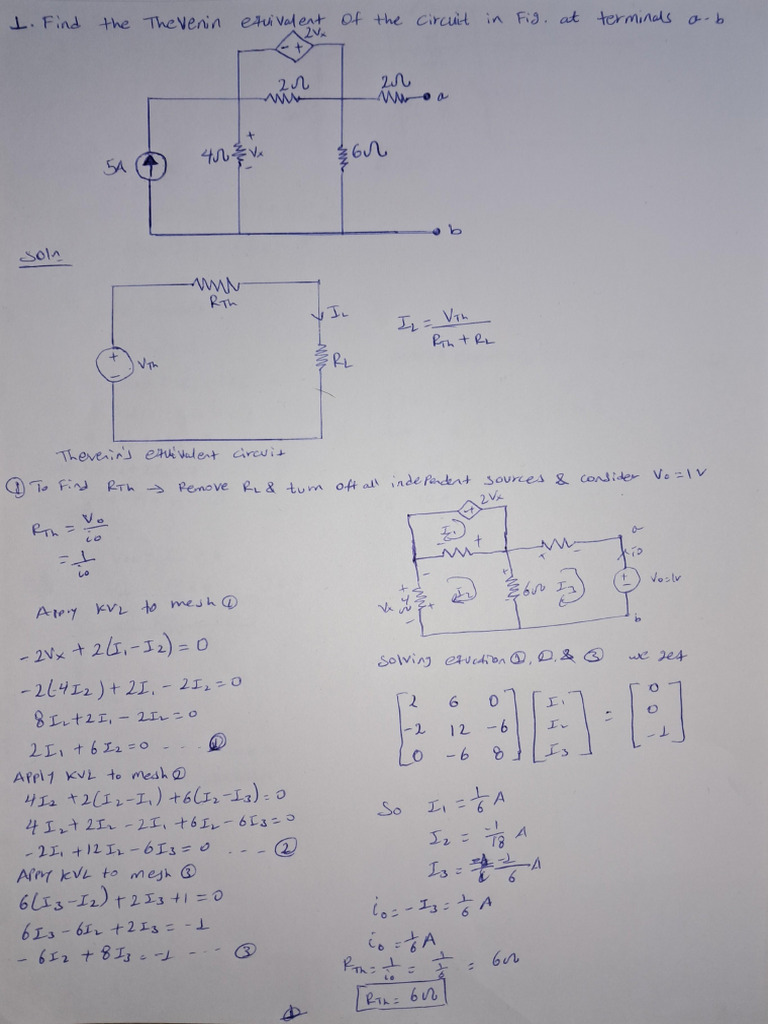 1. Find the Thevenin equivalent of the circuit in Fig. at terminals a-b
2Vx
- +
2Ω
2Ω
a
5A
4Ω
+
Vx
-
6Ω
b
Soln
RTh
IL
+
-
VTh
RL
IL = VTh / RTh + RL
Thevenin's equivalent circuit
① To Find RTh → Remove RL & turn off all independent sources & consider Vo = 1V
RTh = Vo / io
= 1 / io
2Vx
- +
I1
+
+ -
a
io
-
Vx
+
4Ω
-
+
I2
+
6Ω
-
I3
+
-
Vo=1V
b
Apply KVL to mesh ①
-2Vx + 2(I1 - I2) = 0
-2(-4I2) + 2I1 - 2I2 = 0
8I2 + 2I1 - 2I2 = 0
2I1 + 6I2 = 0 ---- ①
Apply KVL to mesh ②
4I2 + 2(I2 - I1) + 6(I2 - I3) = 0
4I2 + 2I2 - 2I1 + 6I2 - 6I3 = 0
-2I1 + 12I2 - 6I3 = 0 ---- ②
Apply KVL to mesh ③
6(I3 - I2) + 2I3 + 1 = 0
6I3 - 6I2 + 2I3 = -1
- 6I2 + 8I3 = -1 ---- ③
Solving equation ①, ②, & ③ we get
[2 6 0] [I1] [0]
[-2 12 -6] [I2] = [0]
[0 -6 8] [I3] [-1]
So I1 = 1/6 A
I2 = -1/18 A
I3 = -1/6 A
io = -I3 = 1/6 A
io = 1/6 A
RTh = 1/io = 1/(1/6) = 6Ω
RTh = 6Ω
①